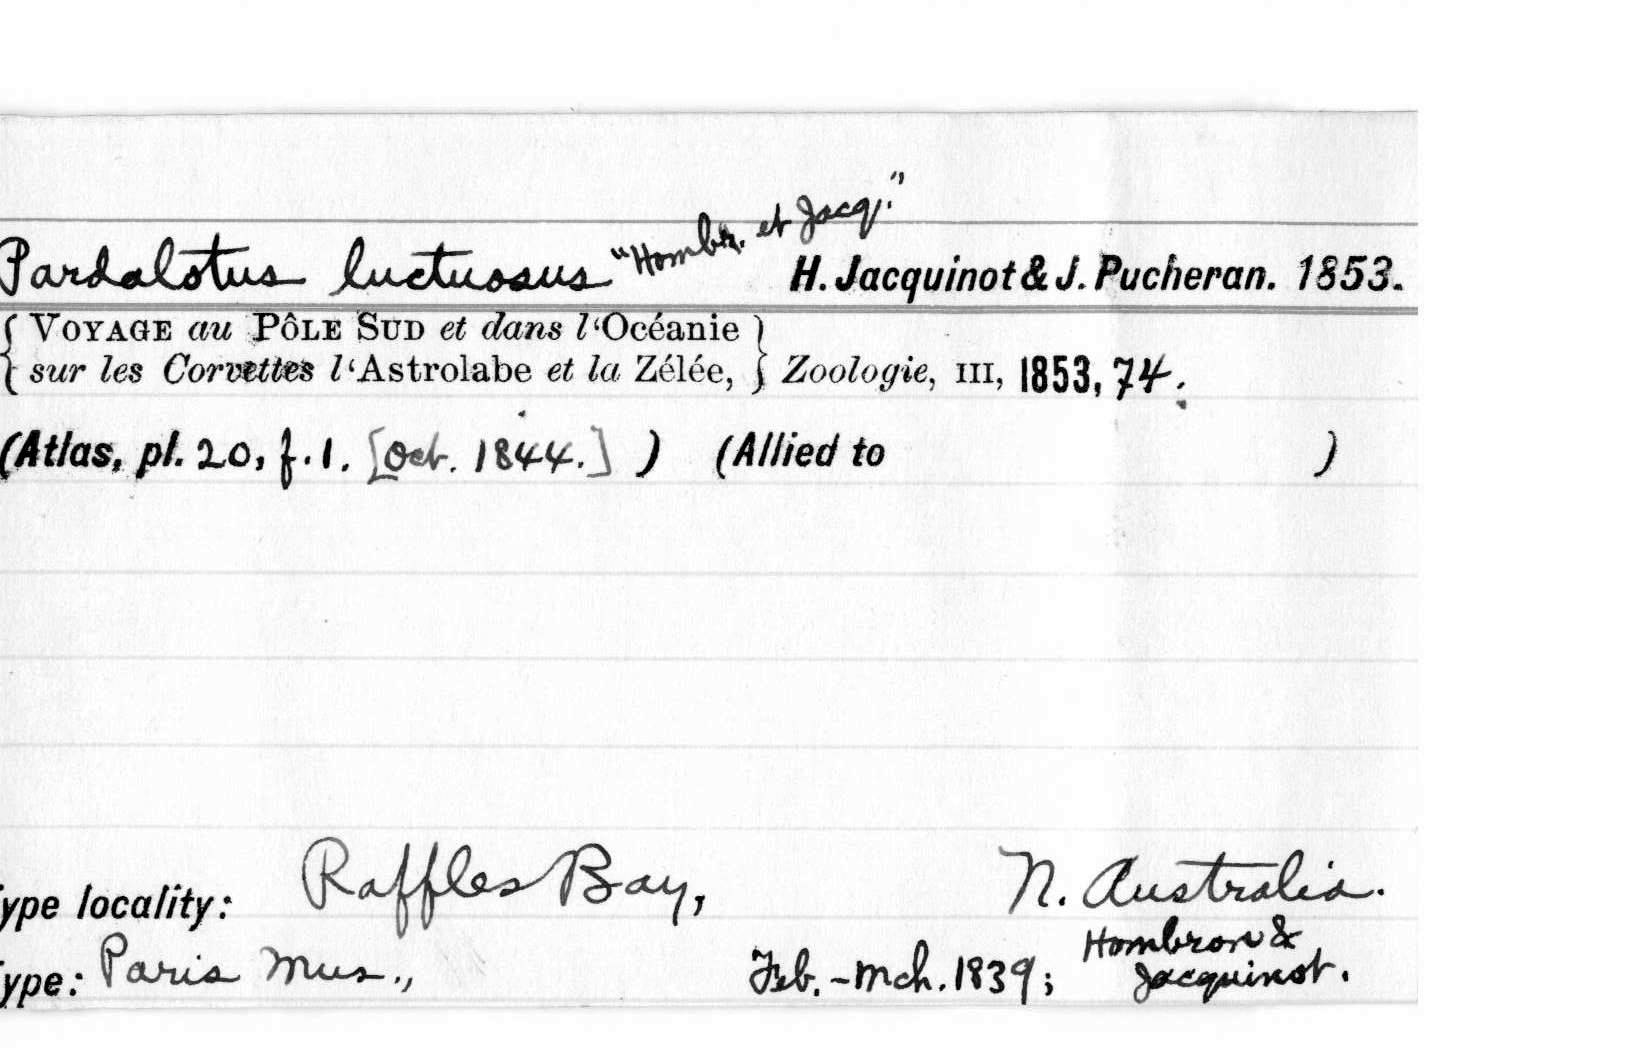 Pardalotus luctuosus "Hombr. et Jacq." H. Jacquinot & J. Pucheran. 1853.
{ VOYAGE au PôLE SUD et dans l‘Océanie }
{ sur les Corvettes l‘Astrolabe et la Zélée, } Zoologie, III, 1853, 74.
(Atlas, pl. 20, f. 1. [Oct. 1844.] ) (Allied to )
ype locality: Raffles Bay, N. Australia.
ype: Paris Mus., Feb. - Mch. 1839; Hombron &
Jacquinot.